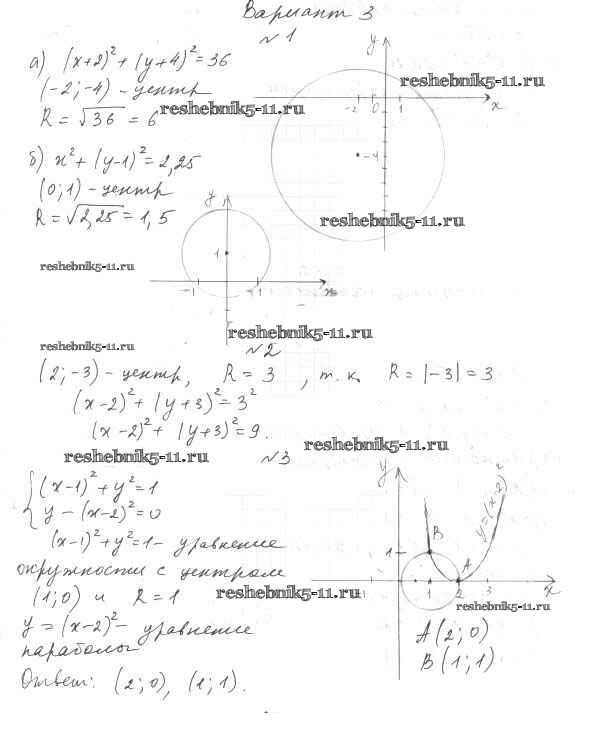 Вариант 3
№1
а) (x+2)²+(y+4)²=36
(-2;-4) - центр
R = √36 = 6
y
reshebnik5-11.ru
-2 0 1 x
-4
reshebnik5-11.ru
б) x²+(y-1)²=2,25
(0;1) - центр
R = √2,25 = 1,5
y
1
-1 1 x
reshebnik5-11.ru
reshebnik5-11.ru
reshebnik5-11.ru
reshebnik5-11.ru
№2
(2;-3) - центр, R = 3, т.к. R = |-3| = 3
(x-2)²+(y+3)²=3²
(x-2)²+(y+3)²=9.
reshebnik5-11.ru
reshebnik5-11.ru
№3
{ (x-1)²+y²=1
y-(x-2)²=0
(x-1)²+y²=1 - уравнение
окружности с центром
(1;0) и R=1
reshebnik5-11.ru
y=(x-2)² - уравнение
параболы
Ответ: (2;0), (1;1).
y
y=(x-2)²
B
1
A
-1 1 2 3 x
reshebnik5-11.ru
A(2;0)
B(1;1)